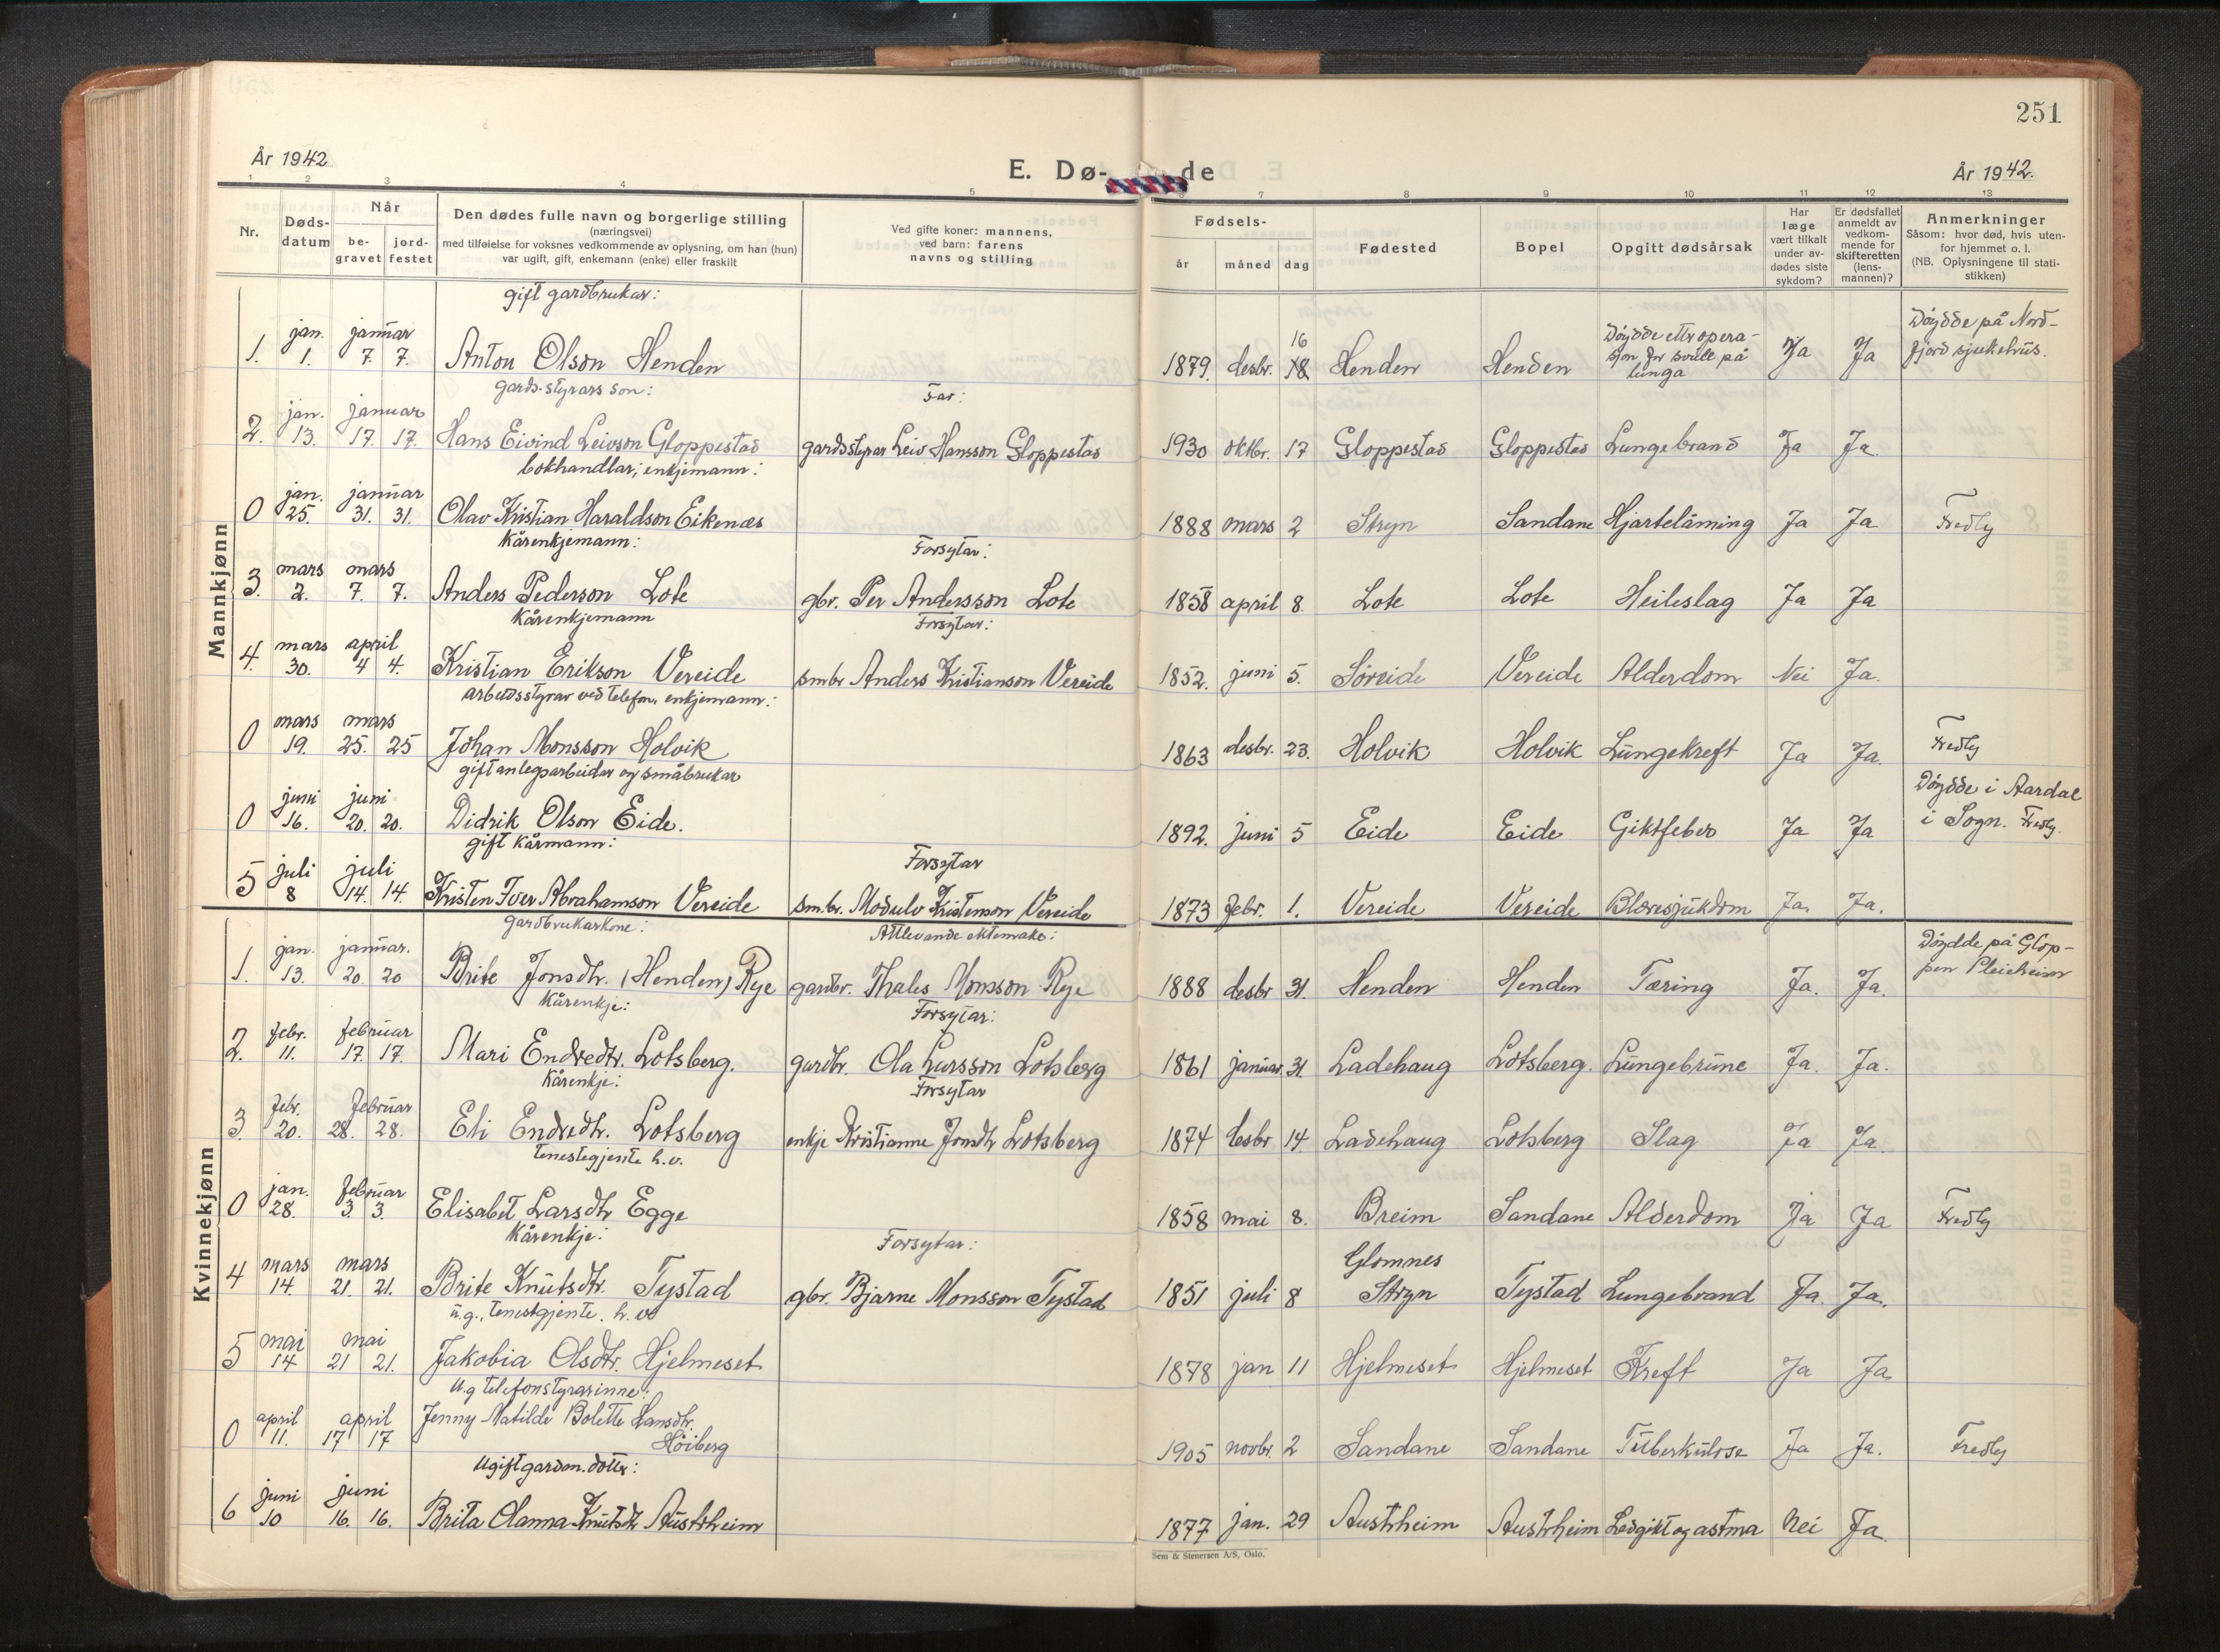 251
År 1942
E. Dø-
de
År 1942.
1 2 3 4 5 7 8 9 10 11 12 13
Nr.
Døds-
datum
Når
be-
gravet
jord-
festet
Den dødes fulle navn og borgerlige stilling
(næringsvei)
med tilføielse for voksnes vedkommende av oplysning, om han (hun)
var ugift, gift, enkemann (enke) eller fraskilt
Ved gifte koner: mannens,
ved barn: farens
navns og stilling
Fødsels-
år måned dag
Fødested
Bopel
Opgitt dødsårsak
Har
læge
vært tilkalt
under av-
dødes siste
sykdom?
Er dødsfallet
anmeldt av
vedkom-
mende for
skifteretten
(lens-
mannen)?
Anmerkninger
Såsom: hvor død, hvis uten-
for hjemmet o. l.
(NB. Oplysningene til stati-
stikken)
Mannkjønn
gift gardbrukar:
1. jan. 1. januar 7. 7. Anton Olson Henden 1879. desbr. 18 16 Henden Henden Døydde ettr opera-
sjon for svull på
tunga Ja Ja Døydde på Nord-
fjord sjukehus.
gards-styrars son: Far:
2. jan. 13. januar 17. 17. Hans Eivind Leivson Gloppestad gardsstyrar Leiv Hansson Gloppestad 1930 oktbr. 17 Gloppestad Gloppestad Lungebrand Ja Ja.
bokhandlar; enkjemann:
0 jan. 25. januar 31. 31. Olav Kristian Haraldson Eikenæs 1888 mars 2 Stryn Sandane Hjartelåming Ja Ja Fredly
Kårenkjemann: Forsytar:
3. mars 2. mars 7. 7. Anders Pederson Lote gbr. Per Andersson Lote 1858 april 8. Lote Lote Heileslag Ja Ja
Kårenkjemann Forsytar:
4. mars 30. april 4 4. Kristian Erikson Vereide smbr Anders Kristianson Vereide 1852. juni 5. Søreide Vereide Alderdom Nei Ja.
arbeidsstyrar ved telefon, enkjemann:
0 mars 19. mars 25. 25 Johan Monsson Holvik 1863 desbr. 23. Holvik Holvik Lungekreft Ja Ja. Fredly
gift anlegsarbeidar og småbrukar
0 juni 16. juni 20. 20. Didrik Olson Eide. 1892. juni 5 Eide Eide Giktfeber Ja Ja Døydde i Aardal
i Sogn. Fredly.
gift Kårmann: Forsytar
5 juli 8 juli 14. 14. Kristen Iver Abrahamson Vereide sm.br. Modulv Kristenson Vereide 1873 febr. 1. Vereide Vereide Blæresjukdom Ja. Ja.
Kvinnekjønn
gardbrukarkone: Attlevande ektemake:
1. jan. 13. januar. 20. 20 Brite Jonsdtr. (Henden) Rye gardbr. Thales Monsson Rye 1888 desbr 31. Henden Henden Tæring Ja. Ja. Døydde på Glop-
pen Pleieheim
Kårenkje: Forsytar:
2. febr. 11. februar 17. 17. Mari Endredtr. Lotsberg. gardbr. Ola Larsson Lotsberg 1861 januar. 31. Ladehaug Lotsberg. Lungebrune Ja. Ja.
Kårenkje: Forsytar
3. febr. 20. februar 28. 28. Eli Endredtr. Lotsberg enkje Kristianne Jonsdtr Lotsberg 1874 desbr 14. Ladehaug Lotsberg Slag Ja Ja.
tenestegjente h.v.
0 jan. 28. februar 3. 3. Elisabet Larsdtr Egge 1858 mai 8. Breim Sandane Alderdom Ja Ja Fredly
Kårenkje: Forsytar:
4 mars 14. mars 21. 21. Brite Knutsdtr. Tystad gbr. Bjarne Monsson Tystad 1851 juli 8 Glomnes
Stryn Tystad Lungebrand Ja. Ja.
u.g., tenestgjente. h.v.
5 mai 14 mai 21 21. Jakobia Olsdtr. Hjelmeset 1878 jan 11 Hjelmeset Hjelmeset Kreft Ja Ja.
u.g telefonstyrarinne:
0 april 11. april 17 17 Jenny Matilde Bolette Hansdtr.
Höiberg 1905 novbr. 2 Sandane Sandane Tuberkulose Ja Ja. Fredly
Ugift gardm.dotter:
6 juni 10 juni 16. 16. Brita Olanna Knutsdtr Austrheim 1877 jan. 29 Austrheim Austrheim Ledgikt og astma Nei Ja.
Sem & Stenersen A/S, Oslo.